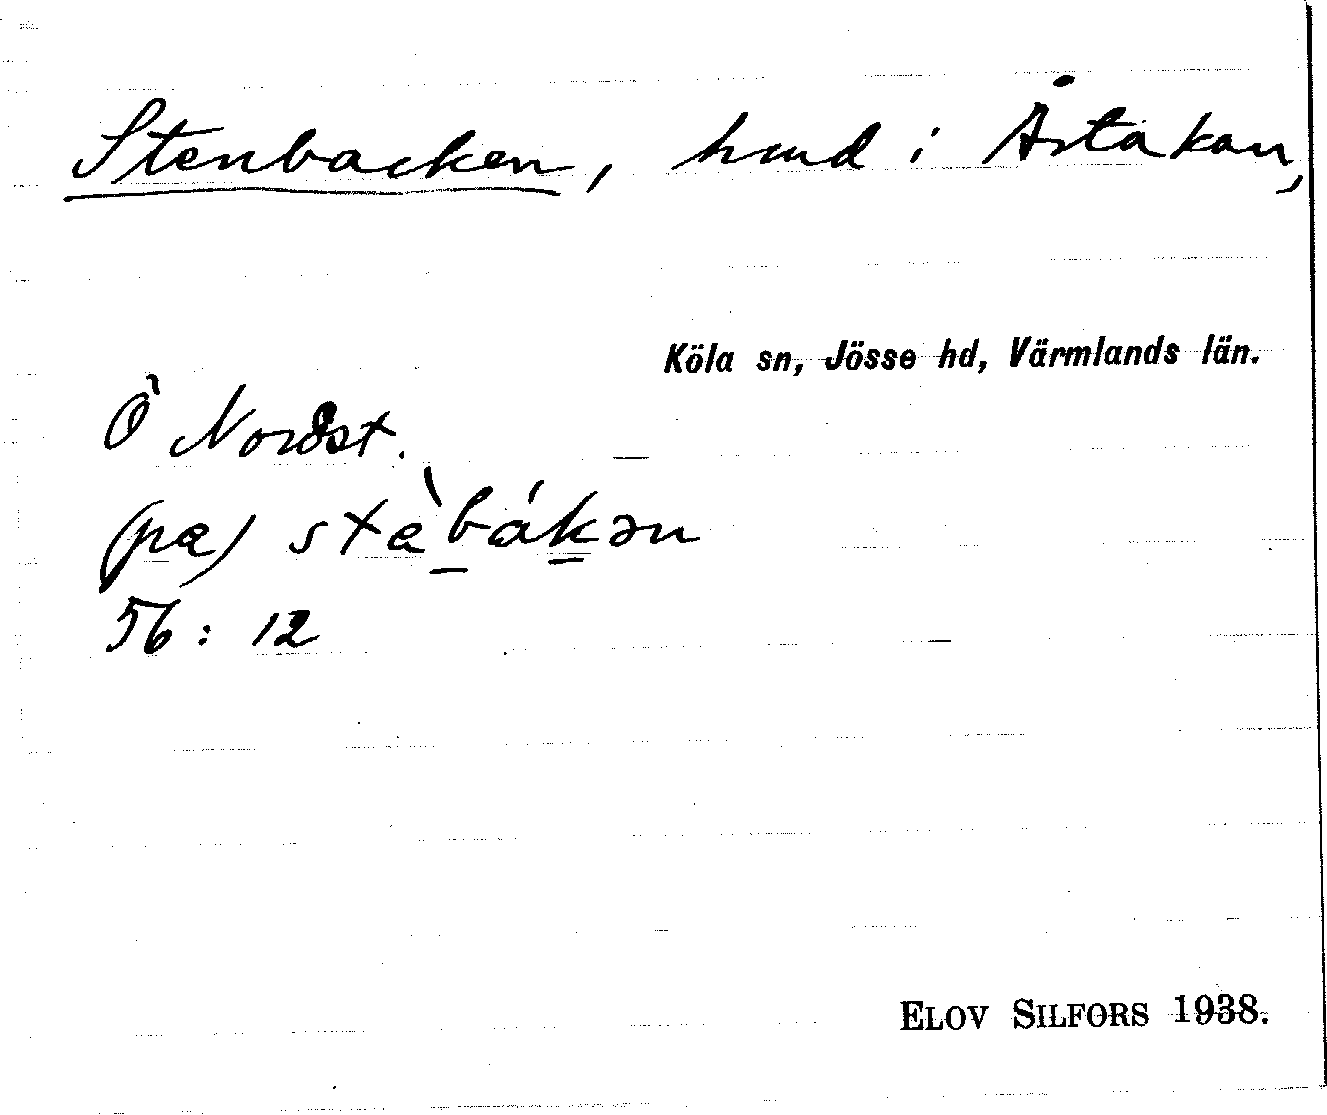 Stenbacken, hmd i Årtakan,
Köla sn, Jösse hd, Värmlands län.
Ö Nordst.
(pa) stàbákən
56: 12
ELOV SILFORS 1938.